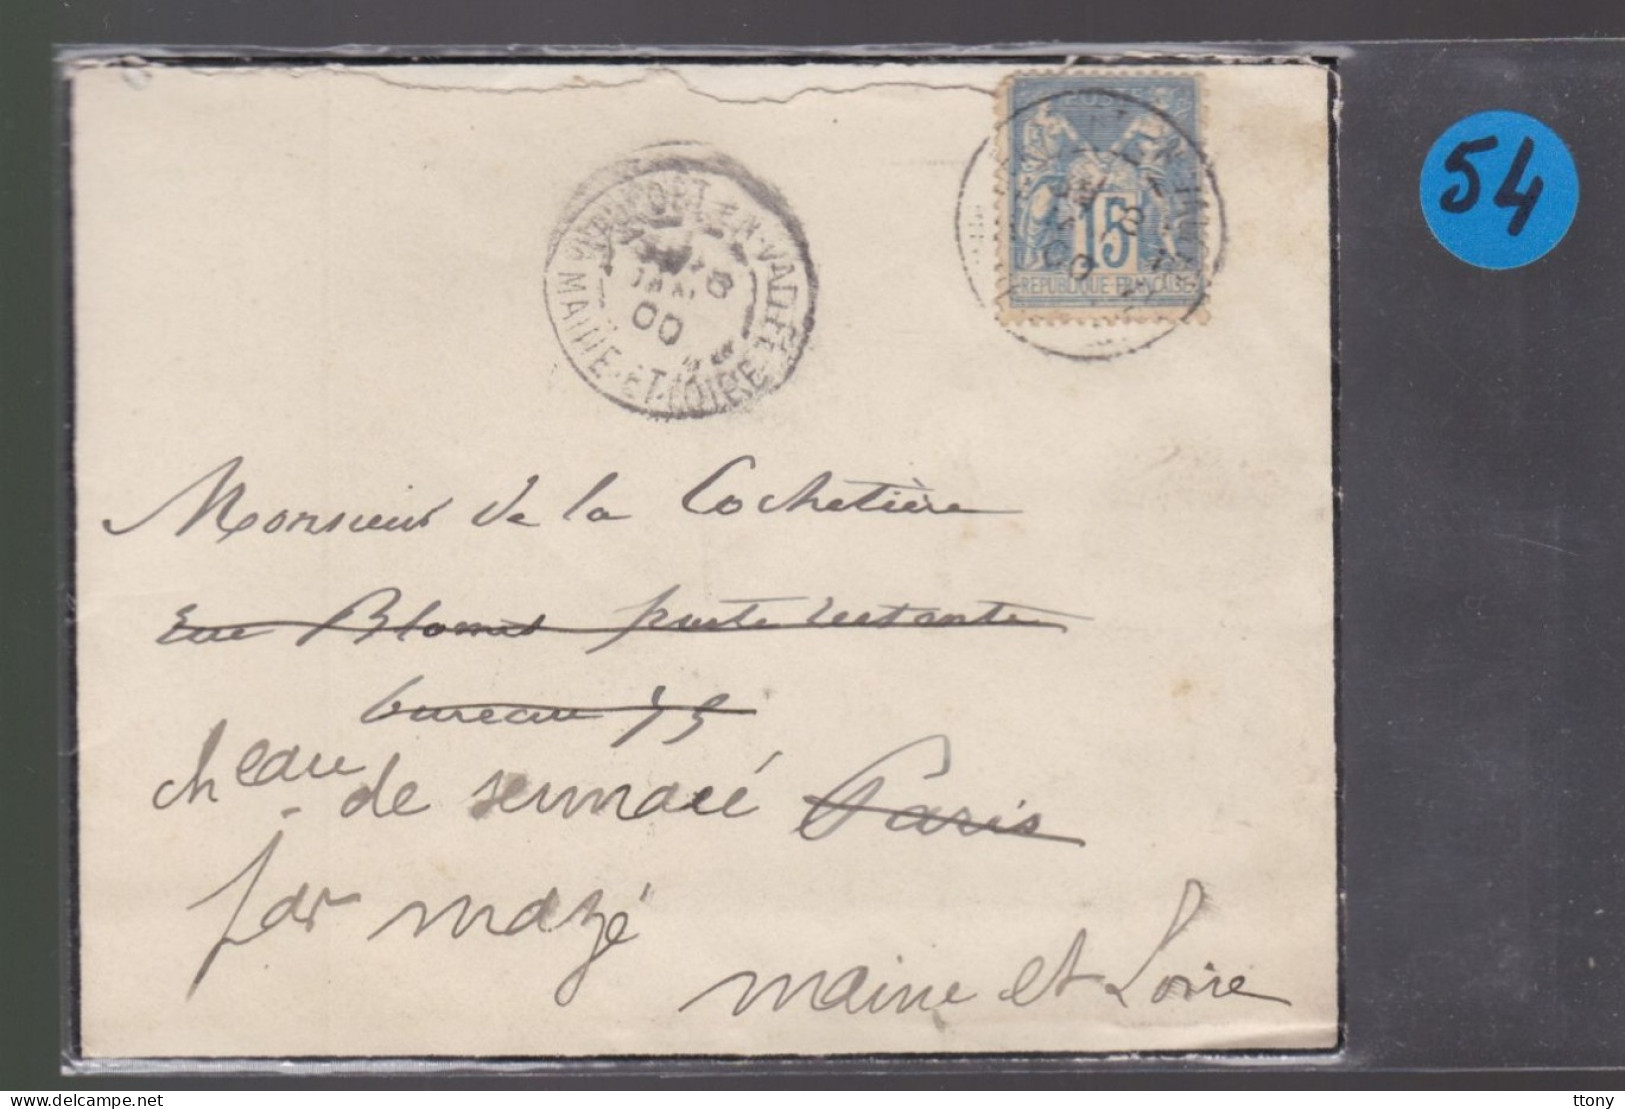 54
POSTE
15
REPUBLIQUE FRANÇAISE
BEAUFORT-EN-VALLÉE
8
JANV
00
MAINE-ET-LOIRE
8
00
Monsieur de la Cochetière
Rue Blomet poste restante
bureau 75
cheau de sermaié Paris
par mazé
maine et Loire
ttony